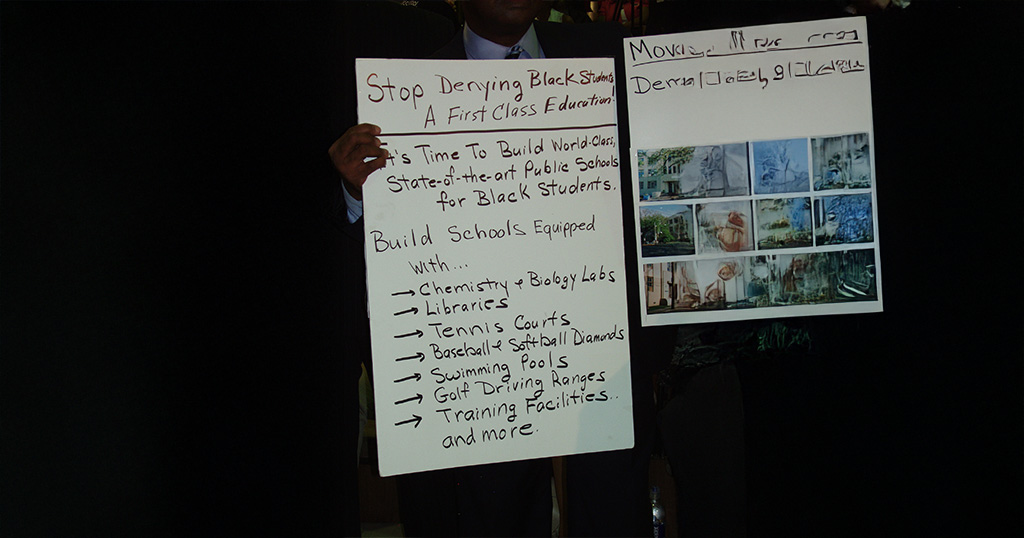 Stop Denying Black Students
A First Class Education!
It's Time To Build World-Class,
State-of-the-art Public Schools
for Black Students.
Build Schools Equipped
with...
→ Chemistry & Biology Labs
→ Libraries
→ Tennis Courts
→ Baseball & Softball Diamonds
→ Swimming Pools
→ Golf Driving Ranges
→ Training Facilities..
and more.